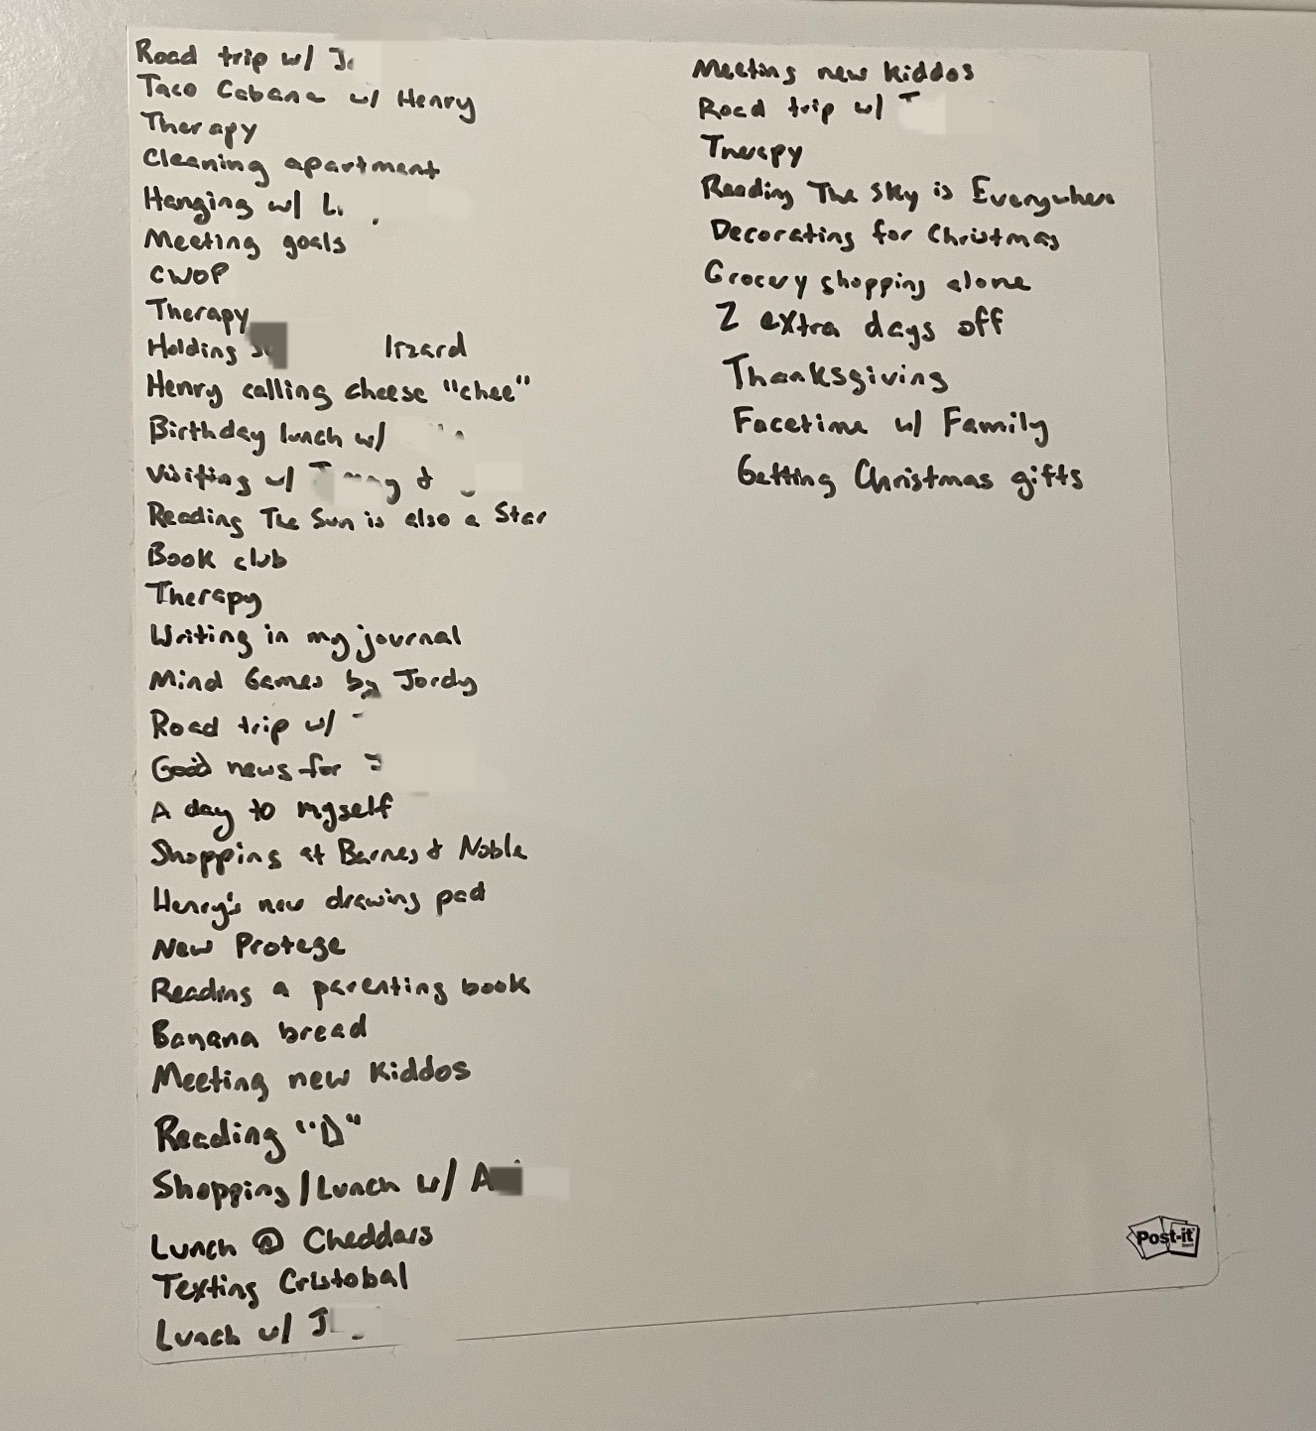 Road trip w/
Taco Cabana w/ Henry
Therapy
Cleaning apartment
Hanging w/
Meeting goals
CWOP
Therapy
Holding lizard
Henry calling cheese "chee"
Birthday lunch w/
Visiting w/ &
Reading The Sun is also a Star
Book club
Therapy
Writing in my journal
Mind Games by Jordy
Road trip w/
Good news for
A day to myself
Shopping at Barnes & Noble
Henry's new drawing pad
New Protege
Reading a parenting book
Banana bread
Meeting new Kiddos
Reading "D"
Shopping/Lunch w/
Lunch @ Cheddars
Texting Cristobal
Lunch w/
Meeting new kiddos
Road trip w/
Therapy
Reading The Sky is Everywhere
Decorating for Christmas
Grocery shopping alone
2 extra days off
Thanksgiving
Facetime w/ Family
Getting Christmas gifts
Post-it